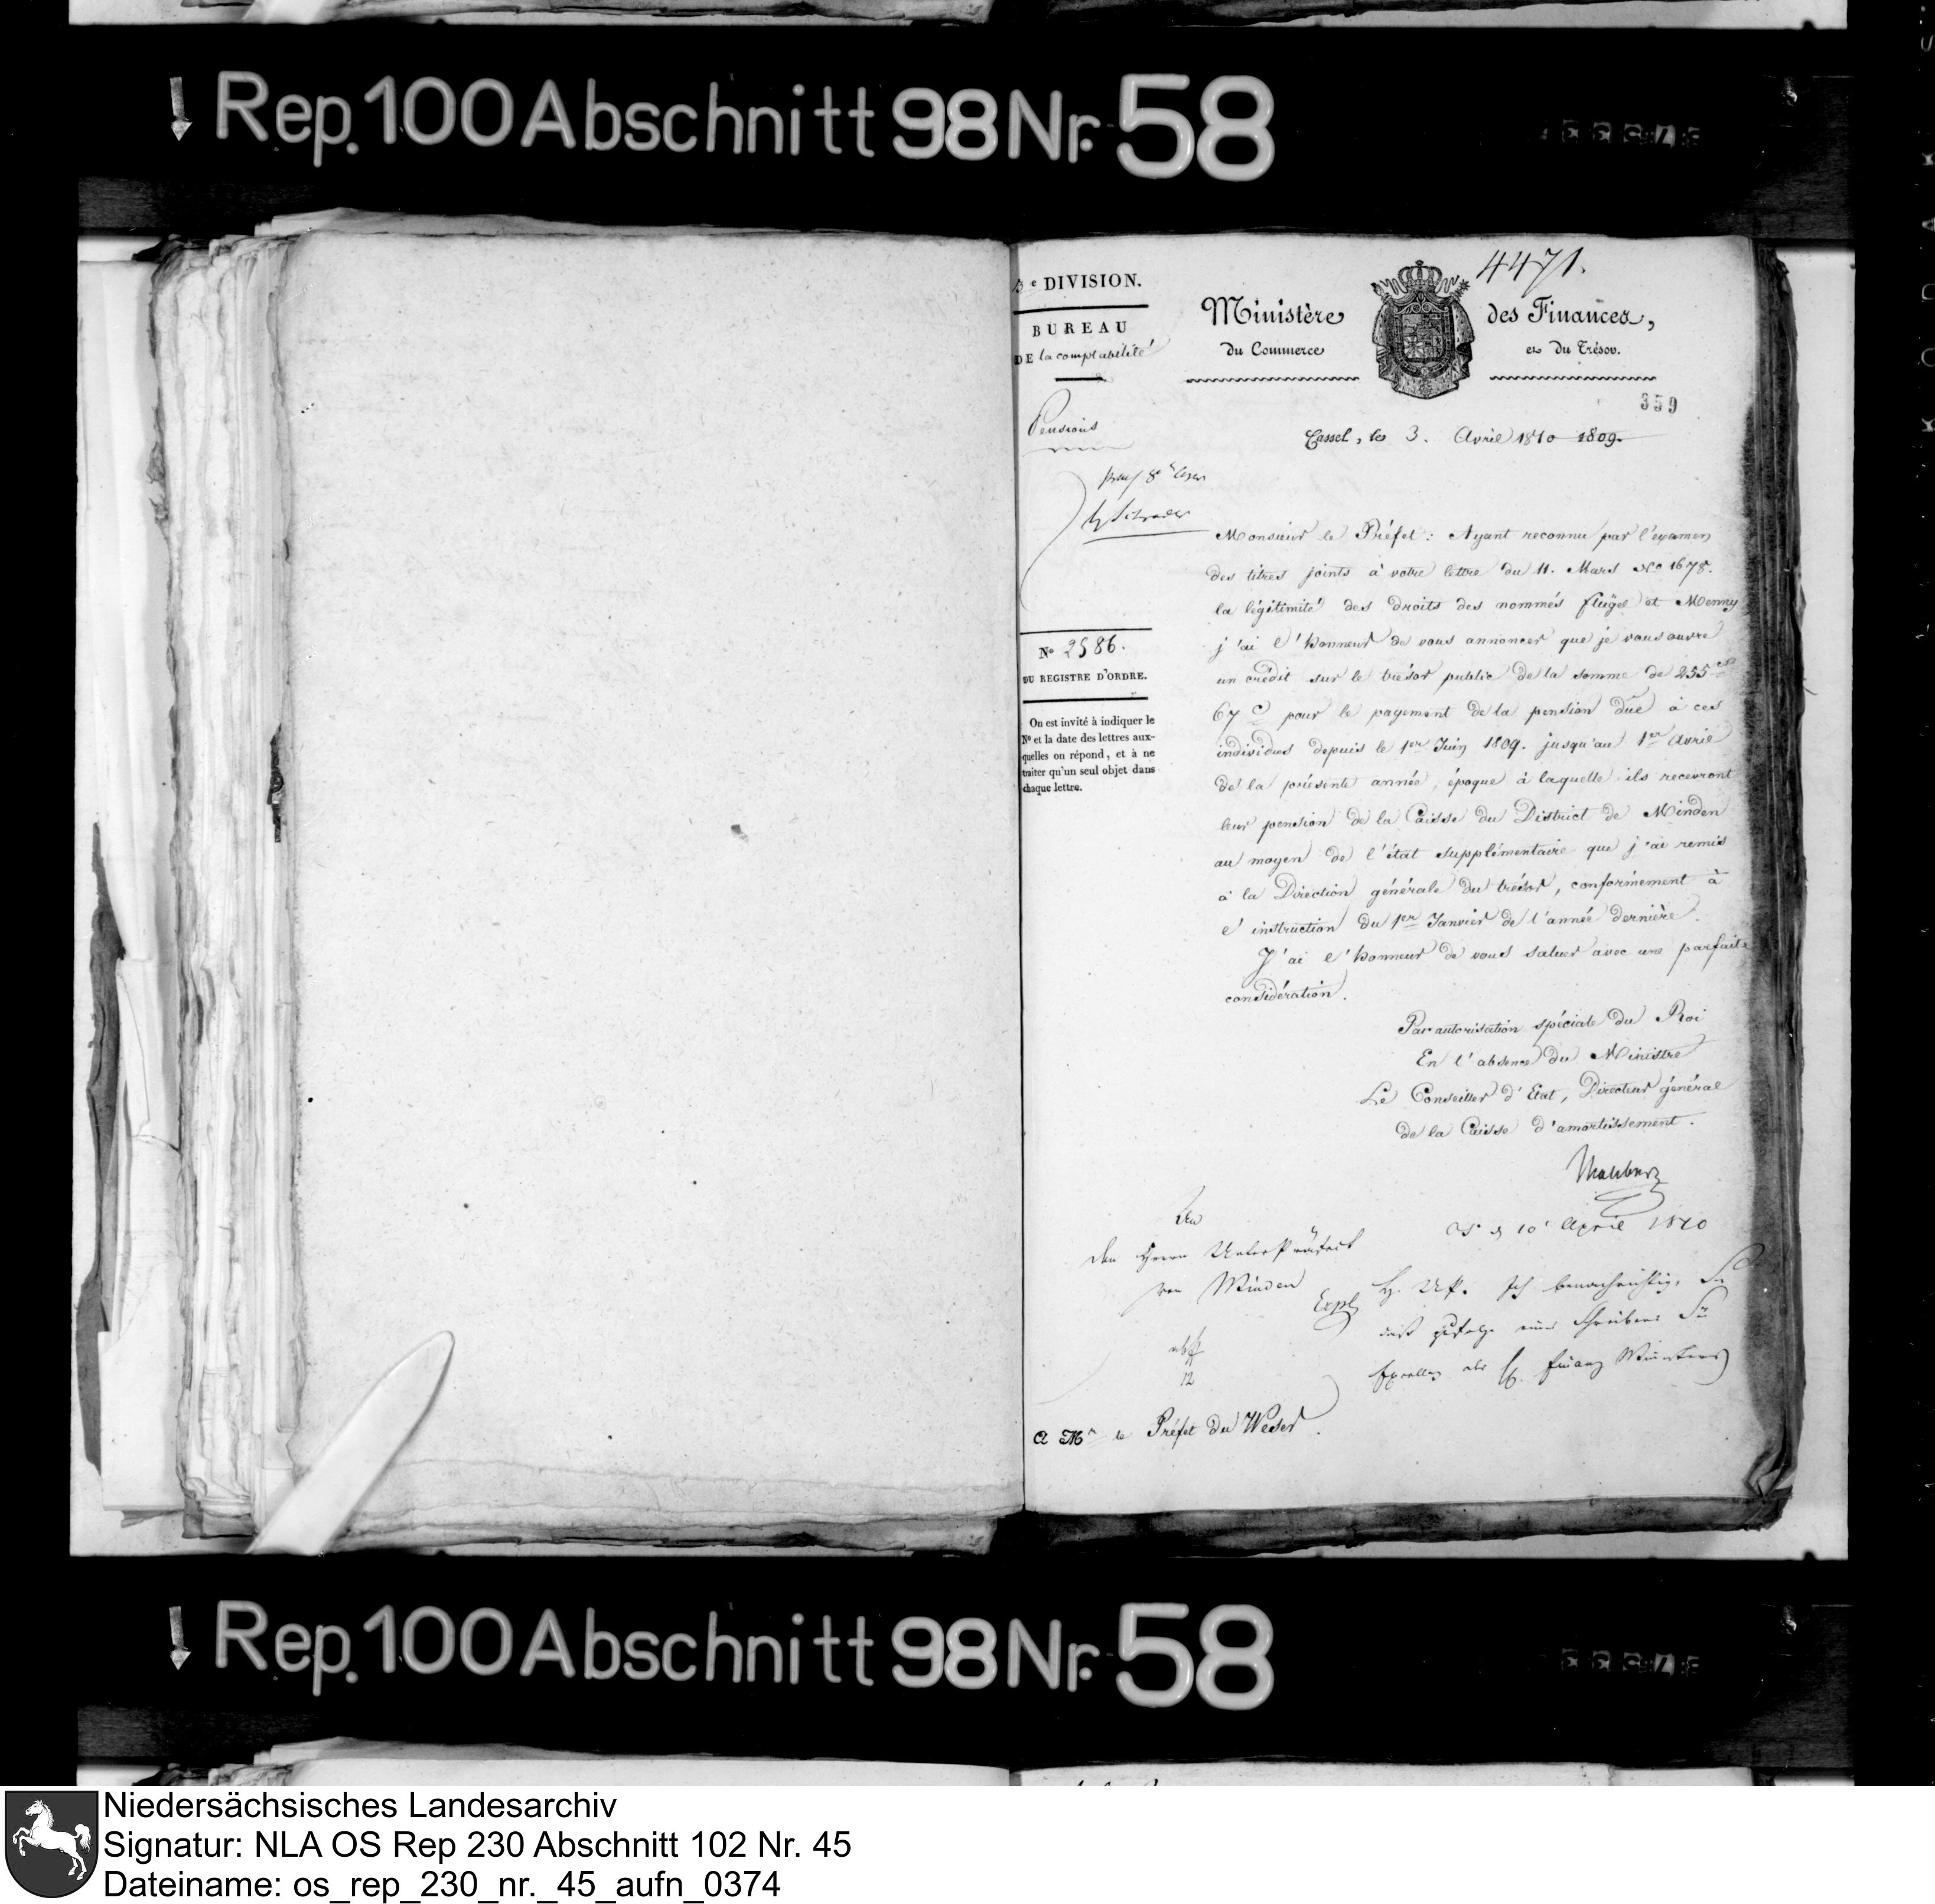 Rep. 100 Abschnitt 98 Nr. 58
4471.
3e DIVISION.
BUREAU
DE la comptabilité
Ministère des Finances,
du Commerce et du Trésor.
359
Pensions
Cassel, le 3. Avril 1810 1809.
Monsieur le Préfet: Ayant reconnu par l'examen
des titres joints à votre lettre du 11. Mars No 1678.
la légitimité des droits des nommés flügel et Menny
j'ai l'honneur de vous annoncer que je vous ouvre
un crédit sur le trésor public de la somme de 255
67 c pour le payement de la pension due à ces
individus depuis le 1er Juin 1809. jusqu'au 1er Avril
de la présente année, époque à laquelle ils recevront
leur pension de la Caisse du District de Minden
au moyen de l'état supplémentaire que j'ai remis
à la Direction générale du trésor, conformement à
l'instruction du 1er Janvier de l'année dernière.
J'ai l'honneur de vous saluer avec une parfaite
considération.
No 2586.
DU REGISTRE D'ORDRE.
On est invité à indiquer le
No et la date des lettres aux-
quelles on répond, et à ne
traiter qu'un seul objet dans
chaque lettre.
Par autorisation spéciale du Roi
En l'absence du Ministre
Le Conseiller d'Etat, Directeur général
de la Caisse d'amortissement.
10 April 1810
An
den Herrn Unterpräfect
von Minden
Ich benachrichtige Sie
daß zufolge eines Schreibens Sr
Excellenz des H. Finanz Ministers
12
A Mr le Préfet du Weser.
Rep. 100 Abschnitt 98 Nr. 58
Niedersächsisches Landesarchiv
Signatur: NLA OS Rep 230 Abschnitt 102 Nr. 45
Dateiname: os_rep_230_nr._45_aufn_0374